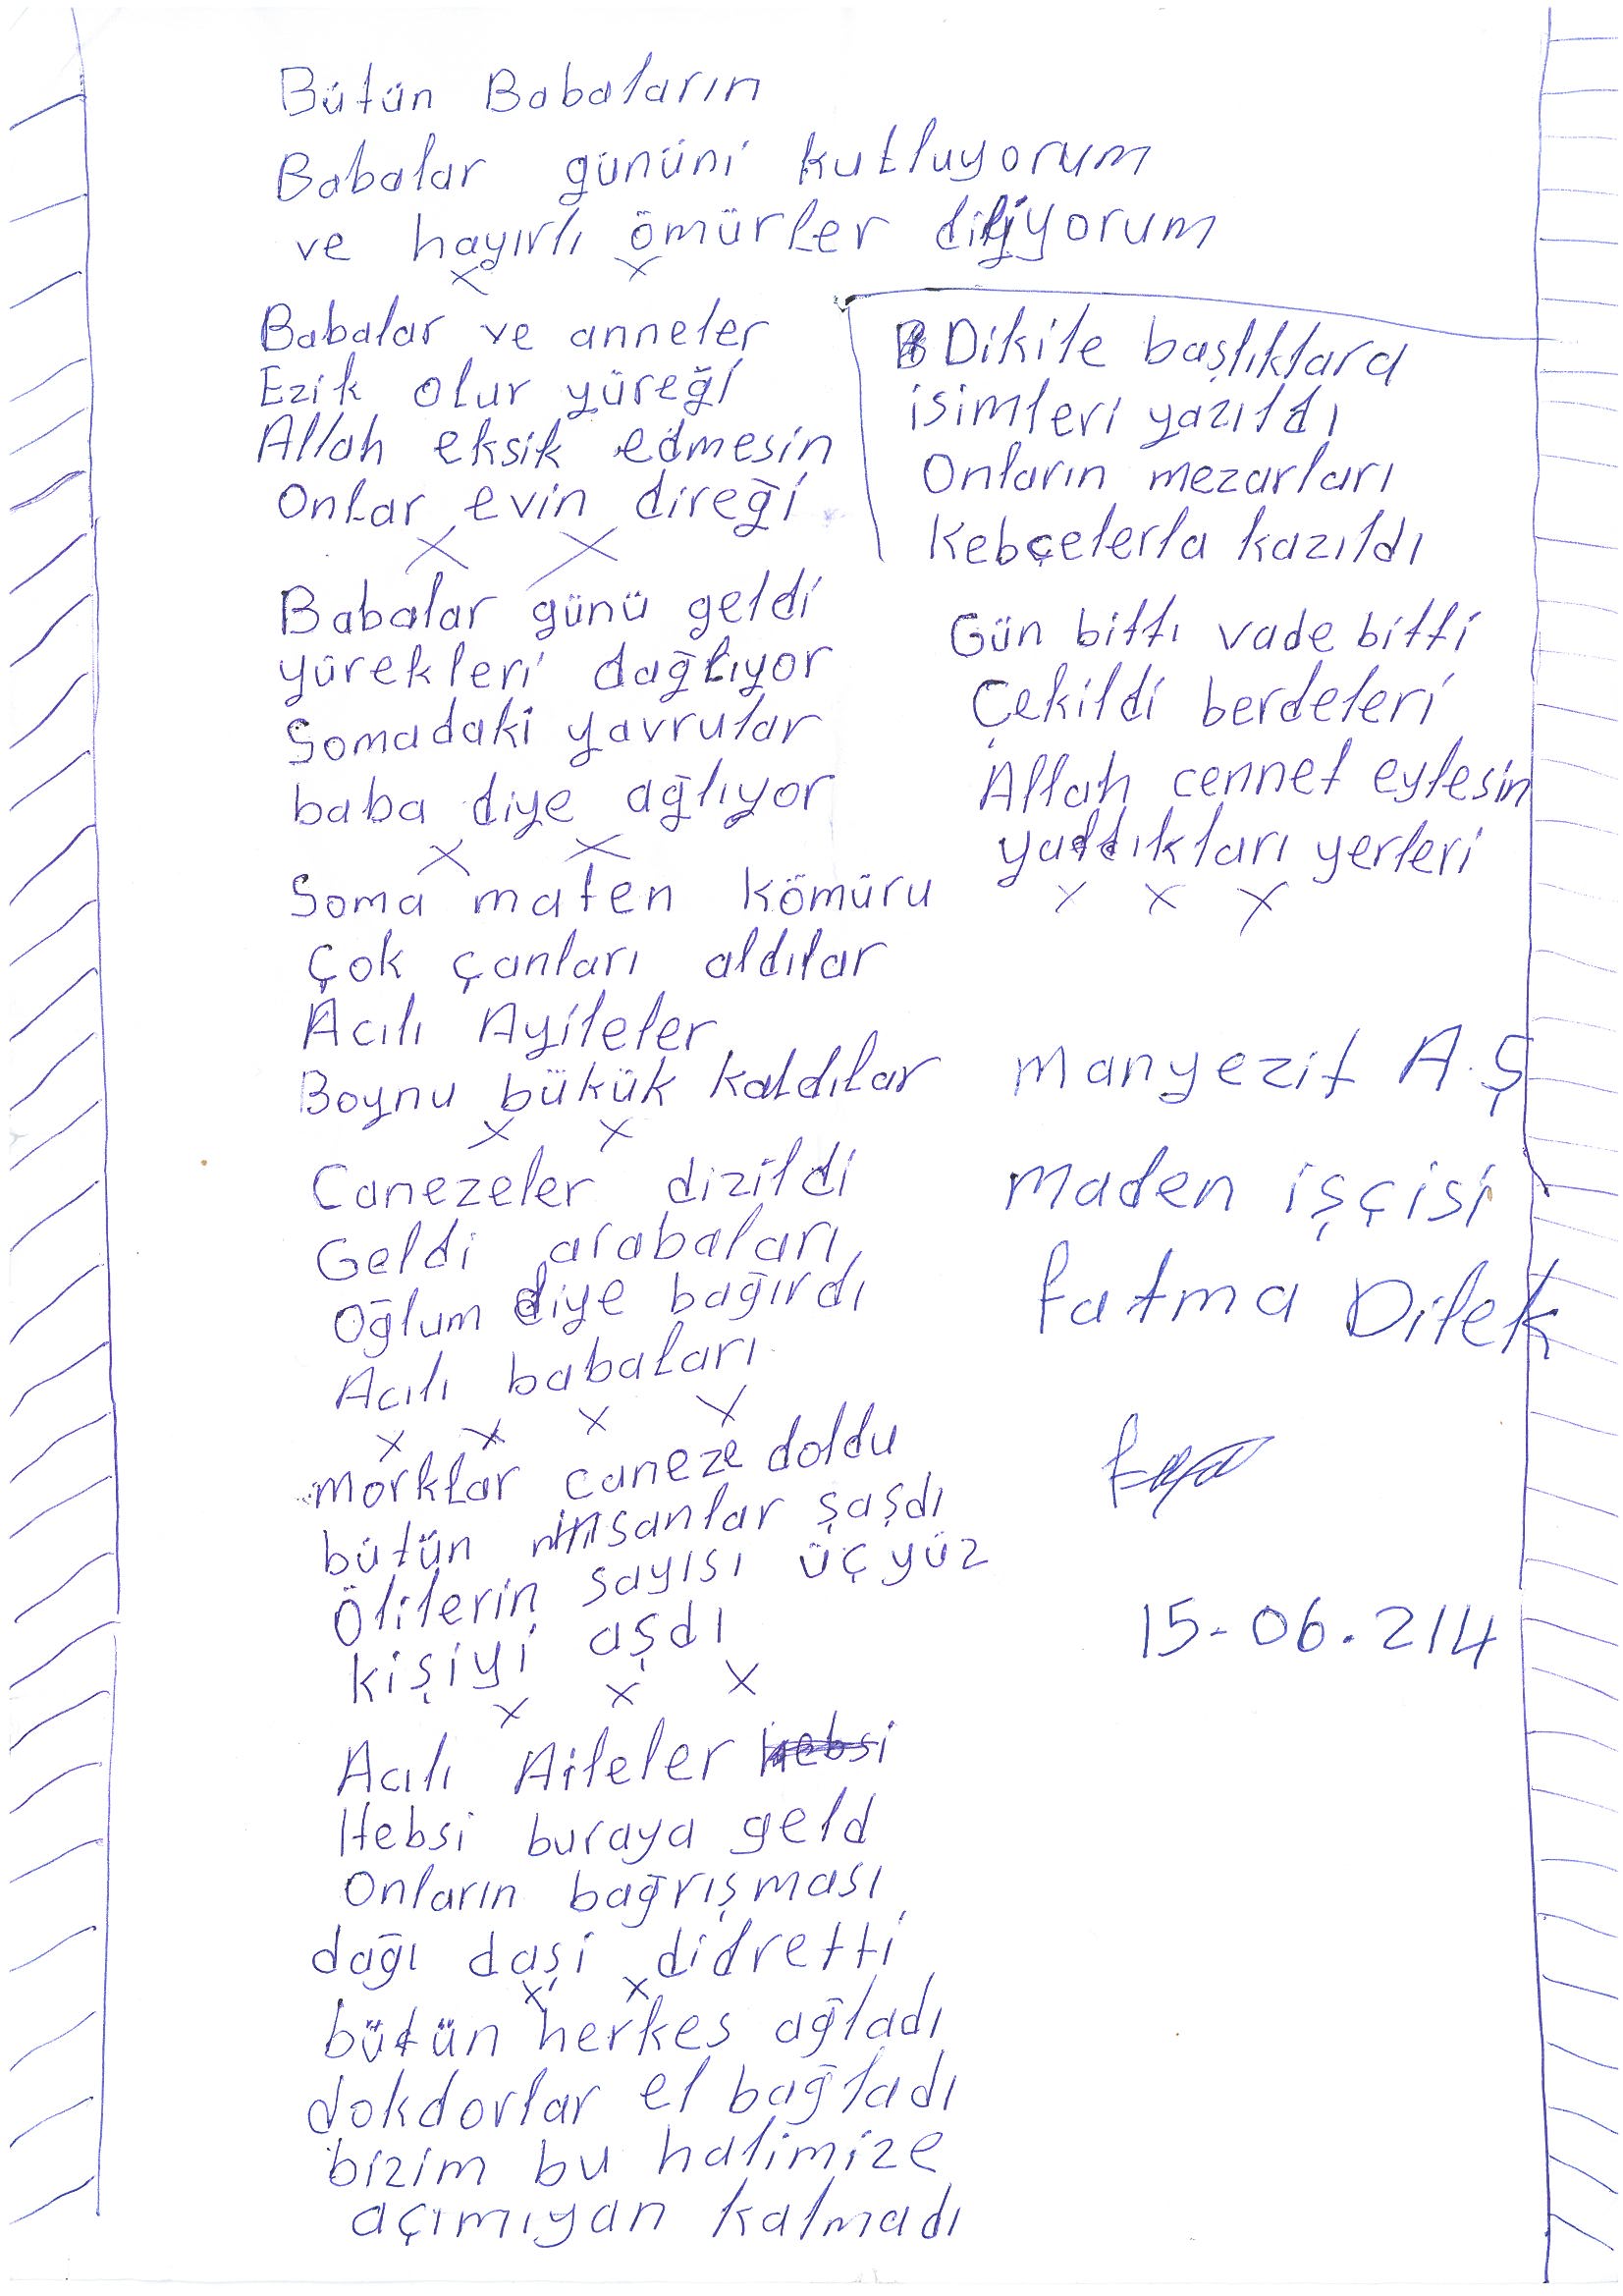 Bütün Babaların
Babalar gününi kutluyorum
ve hayırlı ömürler diliyorum
x x
Babalar ve anneler
Ezik olur yüreği
Allah eksik edmesin
Onlar evin direği
x x
Babalar günü geldi
yürekleri dağlıyor
Somadaki yavrular
baba diye ağlıyor
x x
Soma maten kömürü
Çok çanları aldılar
Acılı Ayileler
Boynu bükük kaldılar
x x
Canezeler dizildi
Geldi arabaları
Oğlum diye bağırdı
Acılı babaları
x x x x
Morklar caneze doldu
bütün insanlar şaşdı
Ölilerin sayısı üçyüz
kişiyi aşdı
x x x
Acılı Aileler hebsi
Hebsi buraya geld
Onların bağrışması
dağı daşi didretti
x x
bütün herkes ağladı
dokdorlar el bağladı
bizim bu halimize
açımıyan kalmadı
Dikile başlıklara
isimleri yazıldı
Onların mezarları
Kebçelerla kazıldı
Gün bittı vade bitti
Çekildi berdeleri
Allah cennet eylesin
yaddıkları yerleri
x x x
Manyezit A.Ş
Maden işçisi
Fatma Dilek
15-06.214